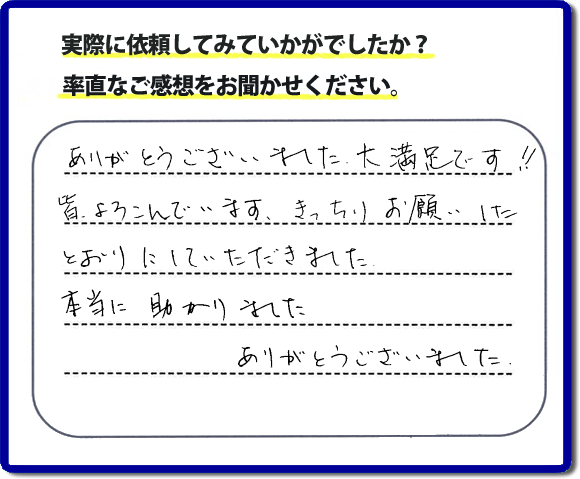 実際に依頼してみていかがでしたか？
率直なご感想をお聞かせください。
ありがとうございました。大満足です!!
皆、よろこんでいます。きっちりお願いした
とおりにしていただきました。
本当に助かりました
ありがとうございました。